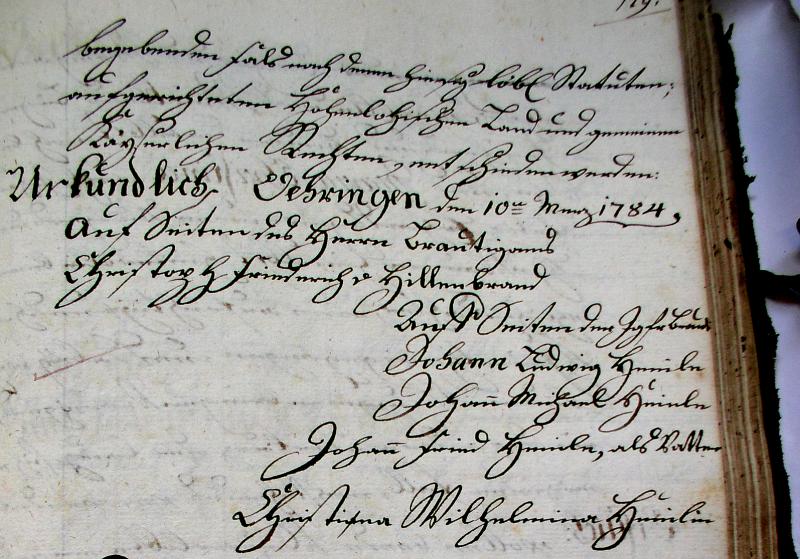 179.
begebenden fals nach denen hiesig löbl Statuten,
aufgerichteten Hohenlohischen Land und gemeinen
Kaÿserlichen Rechten, entschieden werden:
Urkundlich, Oehringen den 10ten Merz 1784,
Auf Seiten des Herrn Bräutigams
Christoph Friederich Hillenbrand
Auf Seiten der Jgfr Braut
Johann Ludwig Heinle
Johann Michael Heinle
Johann Fried Heinle, als Vatter
Christiana Wilhelmina Heinlin